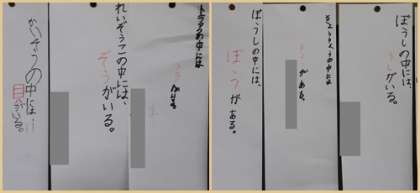 ぼうしの中には、
うしがいる。
の中には
がある。
ぼうしの中には、
ぼうがある。
トラックの中には
れいぞうこの中には、
ぞうがいる。
かいそうの中には…
がいる。